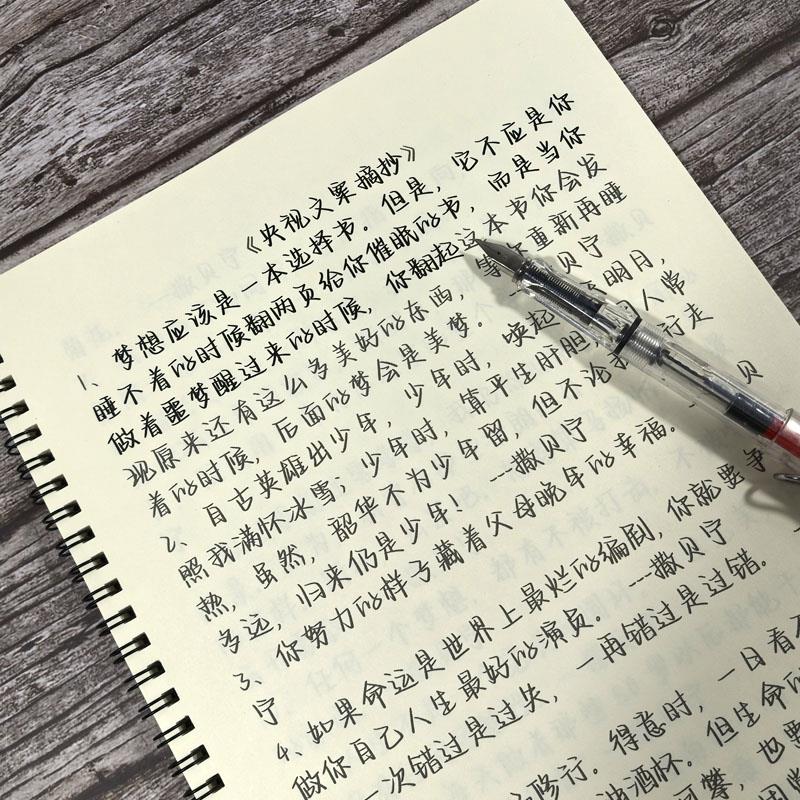 《央视文案摘抄》
1、梦想应该是一本选择书。但是，它不应是你
睡不着的时候翻两页给你催眠的书，而是当你
做着噩梦醒过来的时候，你翻起这本书你会发
现原来还有这么多美好的东西，等你重新再睡
着的时候，后面的梦会是美梦。--撒贝宁
2、自古英雄出少年，少年时，唤起 明月，
照我满怀冰雪；少年时，算平生肝胆，因人常
热，虽然，韶华不为少年留，但不论我 行走
多远，归来仍是少年！--撒贝宁
3、你努力的样子藏着父母晚年的幸福。 贝
宁
4、如果命运是世界上最烂的编剧，你就要争
做你自己人生最好的演员。--撒贝宁
一次错过是过失，一再错过是过错。
修行。得意时，一日看
酒杯。但生命的
可攀，也要